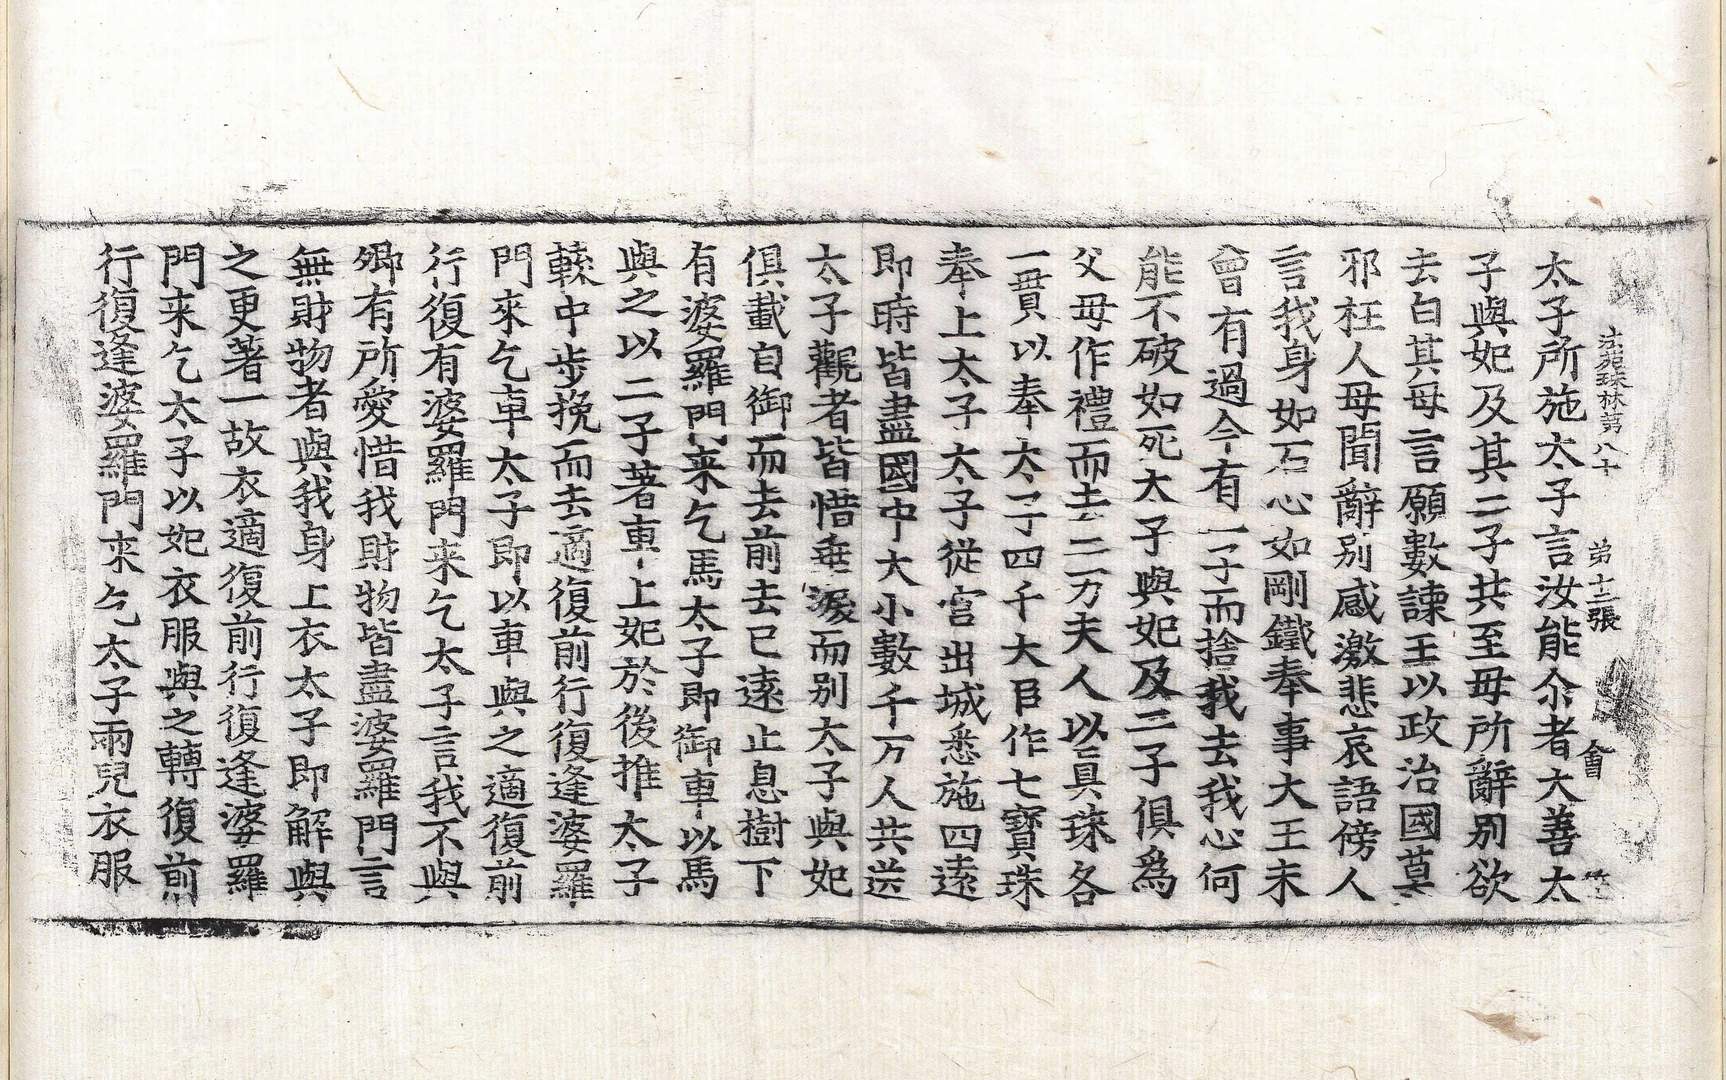 法苑珠林第八十　第十二張　會　竺
太子所施太子言汝能尒者大善太
子與妃及其二子共至母所辭別欲
去白其母言願數諫王以政治國莫
邪枉人母聞辭別感激悲哀語傍人
言我身如石心如剛鐵奉事大王未
曾有過今有一子而捨我去我心何
能不破如死太子與妃及二子俱爲
父母作禮而去二万夫人以眞珠各
一貫以奉太子四千大臣作七寳珠
奉上太子太子從宮出城悉施四遠
即時皆盡國中大小數千万人共送
太子觀者皆惜垂淚而別太子與妃
俱載自御而去前去已遠止息樹下
有婆羅門來乞馬太子即御車以馬
與之以二子著車上妃於後推太子
轅中步挽而去適復前行復逢婆羅
門來乞車太子即以車與之適復前
行復有婆羅門来乞太子言我不與
卿有所愛惜我財物皆盡婆羅門言
無財物者與我身上衣太子即解與
之更著一故衣適復前行復逢婆羅
門来乞太子以妃衣服與之轉復前
行復逢婆羅門来乞太子兩兒衣服